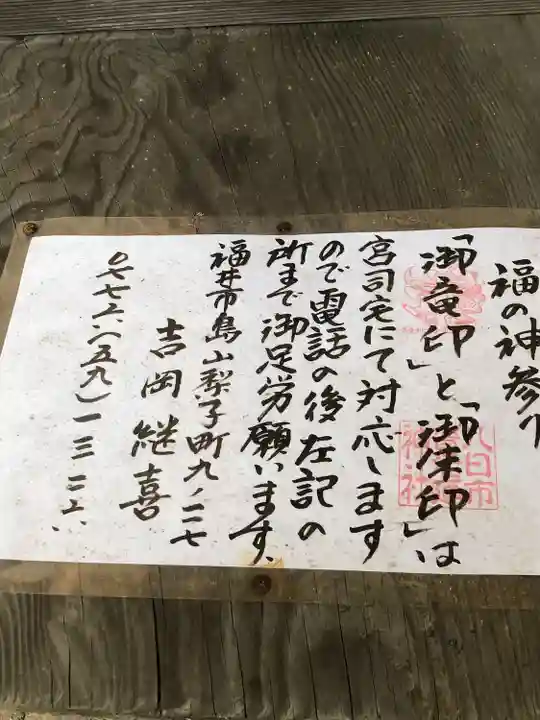 福の神参り
「御竜印」と「御朱印」は
宮司宅にて対応します
ので電話の後左記の
所まで御足労願います、
福井市島山梨子町九ノ二七
吉岡継喜
〇七七六(五九)一三二六
神社